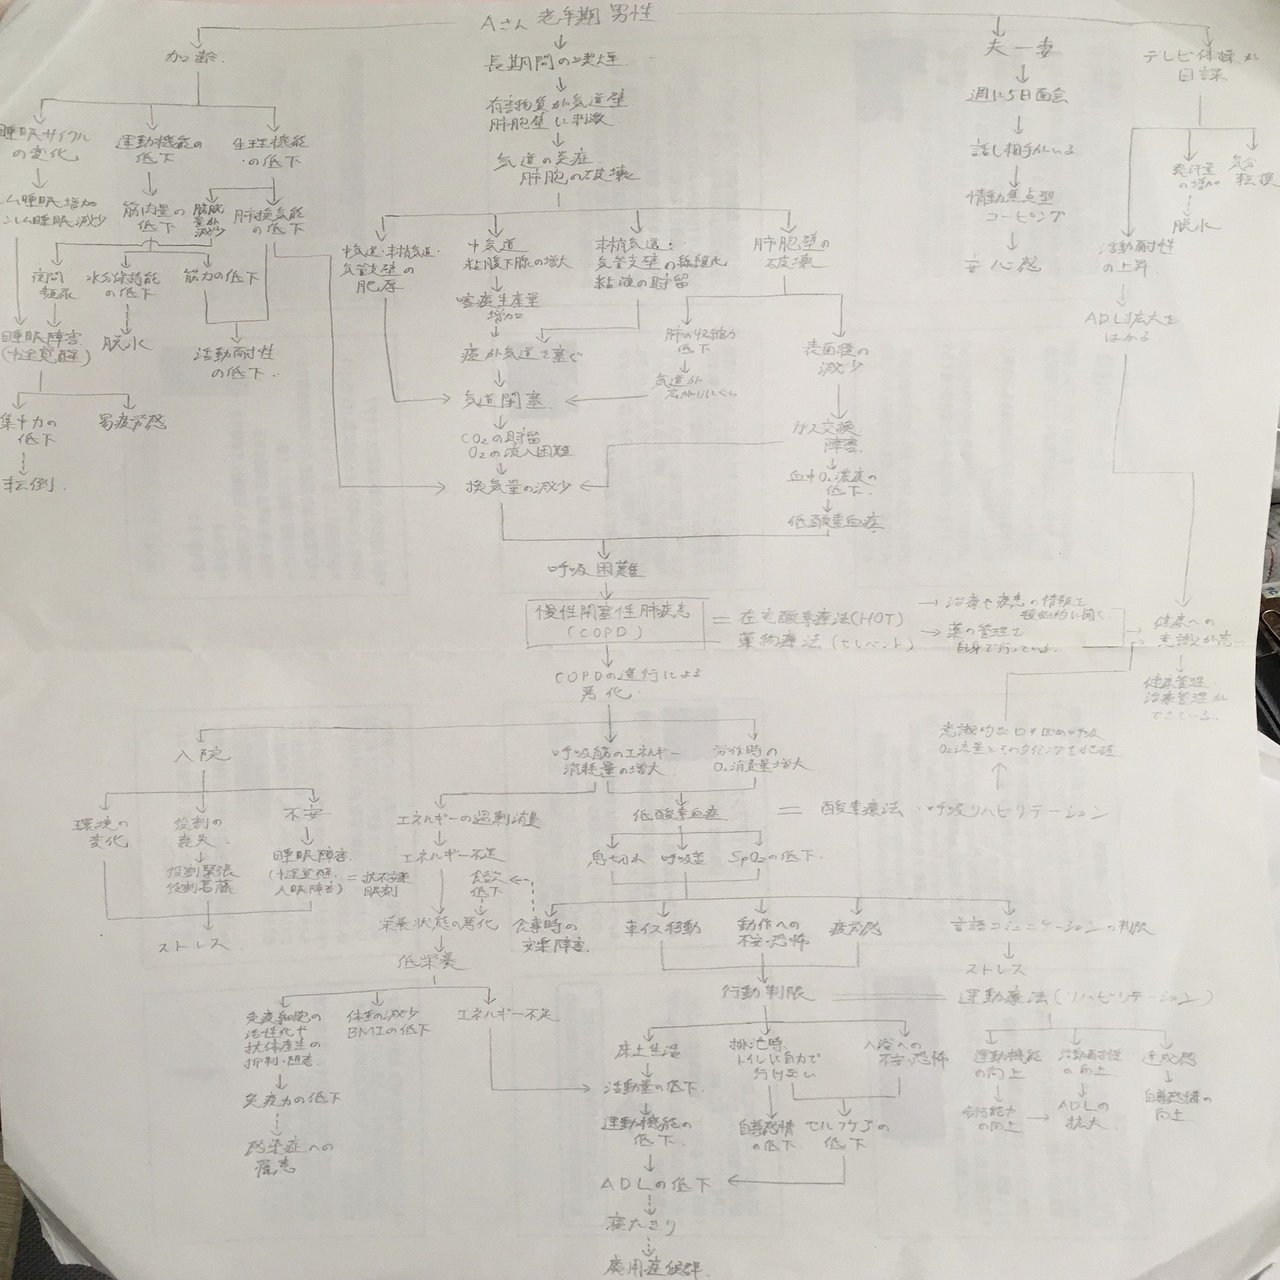 Aさん 老年期 男性
加齢
睡眠サイクル
の変化
レム睡眠増加
ノンレム睡眠減少
運動機能の
低下
筋肉量の
低下
生理機能
の低下
膀胱
容量
減少
肺換気能
の低下
夜間
頻尿
水分保持能
の低下
脱水
筋力の低下
活動耐性
の低下
睡眠障害
(中途覚醒)
集中力の
低下
転倒
易疲労感
長期間の喫煙
有害物質が気道壁
肺胞壁に刺激
気道の炎症
肺胞の破壊
中気道・末梢気道・
気管支壁の
肥厚
中気道
粘膜下腺の増大
喀痰生産量
増加
痰が気道を塞ぐ
末梢気道・
気管支壁の線維化
粘液の貯留
肺胞壁の
破壊
肺の収縮力
低下
気道が
広がりにくい
表面積の
減少
気道閉塞
CO₂の貯留
O₂の流入困難
換気量の減少
ガス交換
障害
血中O₂濃度の
低下
低酸素血症
呼吸困難
慢性閉塞性肺疾患
(COPD)
= 在宅酸素療法(HOT)
= 薬物療法(セレベント)
→ 治療や疾患の情報を
積極的に聞く
→ 薬の管理を
自身で行っている
夫ー妻
週に5日面会
話し相手がいる
情動焦点型
コーピング
安心感
テレビ体操が
日課
活動耐性
の上昇
ADL拡大を
はかる
発汗量
の増加
脱水
気分
転換
健康への
意識が高い
健康管理
治療管理が
できている
COPDの進行による
悪化
入院
環境の
変化
役割の
喪失
役割緊張
役割葛藤
不安
睡眠障害
(中途覚醒
入眠障害)
= 抗不安薬
眠剤
ストレス
呼吸筋のエネルギー
消耗量の増大
労作時の
O₂消費量増大
エネルギーの過剰消費
エネルギー不足
食欲
低下
栄養状態の悪化
低栄養
免疫細胞の
活性化や
抗体産生の
抑制・阻害
免疫力の低下
感染症への
罹患
体重の減少
BMIの低下
エネルギー不足
低酸素血症
= 酸素療法・呼吸リハビリテーション
意識的な口すぼめ呼吸
息切れ
呼吸苦
SpO₂の低下
食事時の
車イス移動
動作への
不安・恐怖
疲労感
言語コミュニケーションの制限
ストレス
行動制限
運動療法(リハビリテーション)
床上生活
活動量の低下
運動機能の
低下
排泄時、
トイレに自力で
行けない
自尊感情
の低下
入浴への
不安・恐怖
セルフケアの
低下
運動機能
の向上
活動耐性
の向上
ADLの
拡大
達成感
自尊感情の
向上
ADLの低下
寝たきり
廃用症候群